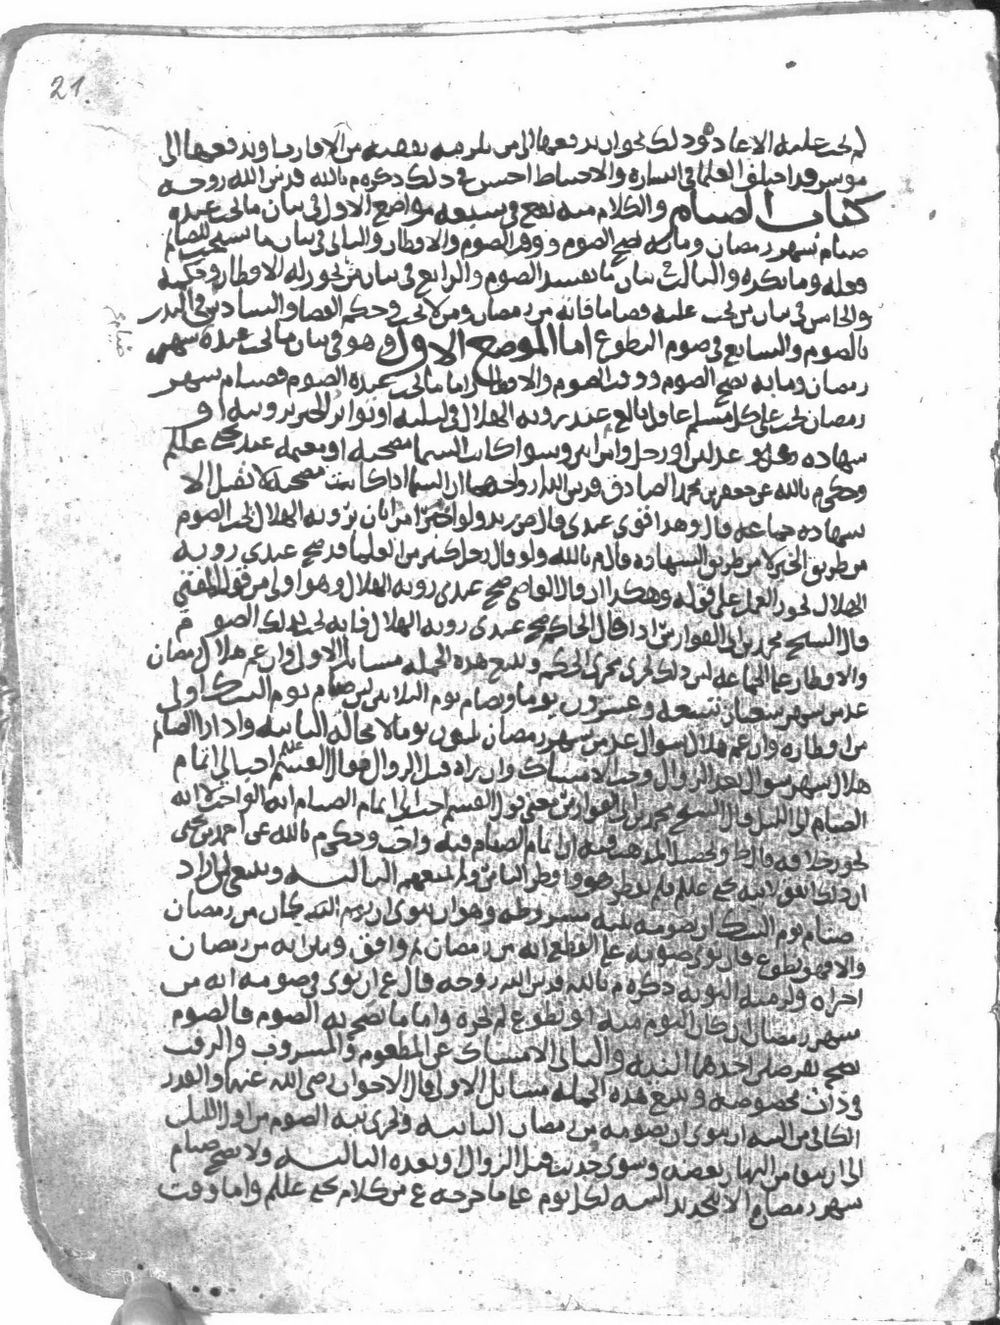 21
لم يجب عليه الاعادة وذلك نحو ان يدفعها الى من يلزمه نفقته من الاقارب او يدفعها الى
موسر قد اختلف العلماء في يساره والاحتياط احسن في ذلك ذكره م بالله قدس الله روحه
كتاب الصيام والكلام منه يقع في سبعة مواضع الاول في بيان ما يجب عنده
صيام شهر رمضان وما به يصح الصوم ووقت الصوم والافطار والثاني في بيان ما يستحب للصائم
فعله وما يكره والثالث في بيان ما يفسد الصوم والرابع في بيان من يجوز له الافطار وحكمه
والخامس في بيان من يجب عليه قضا ما فاته من رمضان ومن لا يجب وحكم القضا والسادس في النذر
بالصوم والسابع في صوم التطوع اما الموضع الاول وهو في بيان ما يجب عنده شهر
رمضان وما به يصح الصوم ووقت الصوم والافطار اما ما يجب عنده الصوم فصيام شهر
رمضان يجب على كل مسلم عاقل بالغ عند رويه الهلال في ليلته او تواتر الخبر برويته او
شهاده عدلين او رجل وامراتين وسوا كانت السما مصحيه او مغيمه عند يحيى عللم
وحكى م بالله عن جعفر بن محمد الصادق قدس الله روحهما ان السما اذا كانت مصحيه لا تقبل الا
شهاده جماعه قال وهذا قوي عندي قال ص زيد ولو اخبر امراتان برويه الهلال يجب الصوم
من طريق الخبر لا من طريق الشهاده قال م بالله ولو قال رجل كبير من العلما قد صح عندي رويه
الهلال يجوز العمل على قوله وهكذا ان قال القاضي صح عندي رويه الهلال وهو اولى من قول المفتي
قال الشيخ محمد بن ابي الفوارس اذا قال الحاكم صح عندي رويه الهلال فانه يجب بذلك الصوم
والافطار على الجماعه لان ذلك يجري مجرى الحكم ويتبع هذه الجمله مسائل الاولى وان غم هلال رمضان
عد من شهر شعبان تسعه وعشرون يوما وصام يوم الثلاثين لان صيام يوم الشك اولى
من افطاره وان غم هلال شوال عد من شهر رمضان ثلثون يوما لا محاله الثانيه واذا راا الصائم
هلال شهر شوال بعد الزوال وجب الامساك وان راه قبل الزوال فقال القسم علم احب الي اتمام
الصيام الى الليل قال الشيخ محمد بن ابي الفوارس معنى قول القسم احب الي اتمام الصيام انه الواجب لا انه
يجوز خلافه قال ط وتحصيل المذهب فيه ان اتمام الصيام فيه واجب وحكى م بالله عن احمد بن يحيى
صيام يوم الشك ان يصومه بنيه مشروطه وهو ان ينوي ان يوم الشك ان كان من رمضان
والا فهو تطوع فان نوى صومه على القطع انه من رمضان ثم وافق وبان انه من رمضان
اجزاه ولزمته التوبه ذكره م بالله قدس الله روحه قال ع ان نوى في صومه انه من
شهر رمضان ان كان اليوم منه او تطوع لم يجزه واما ما يصح به الصوم فالصوم
يصح بفرضين احدهما النيه والثاني الامساك عن المطعوم والمشروب والرفث
في ذات مخصوصه ويتبع هذه الجمله مسائل الاولى قال الاخوان رضي الله عنهما والقدر
الكافي من النيه ان ينوي ان يصومه من رمضان الثانيه وتجزي نيه الصوم من اول الليل
الى ان يبقى من النهار بعضه وسوى حدثت قبل الزوال او بعده الثالثه ولا يصح صيام
شهر رمضان الا بتجديد النيه لكل يوم على ما خرجه ع من كلام يحيى عللم واما وقت